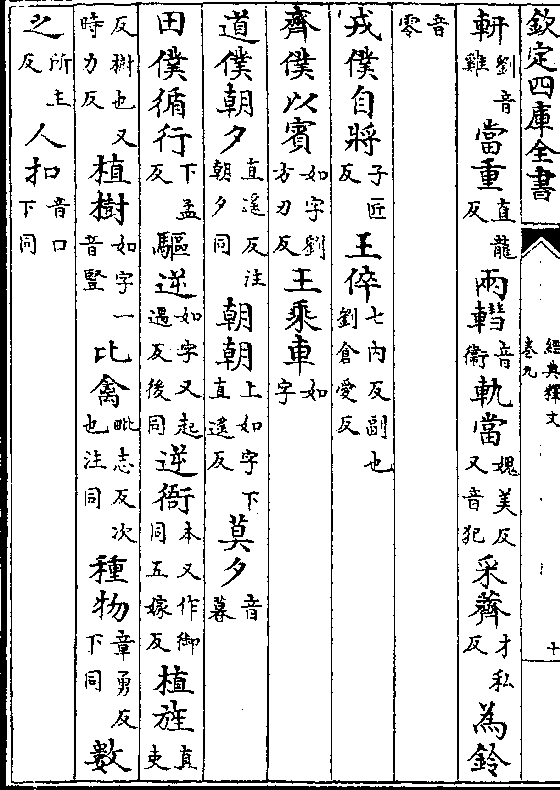 欽定四庫全書
經典釋文
卷九
十
軒劉音雞當重直龍反兩轊音衛軌當媿美反又音犯采薺才私反為鈴
音零
戎僕自將子匠反王倅七内反副也劉倉愛反
齊僕以賓如字劉方刃反王乘車如字
道僕朝夕直遙反注朝夕同朝朝上如字下直遙反莫夕音暮
田僕循行下孟反驅逆如字又起遇反後同逆衙本又作御同五嫁反植旌直吏
反樹也又時力反植樹如字一音豎比禽毗志反次也注同種物章勇反下同數
之所主反人扣音口下同